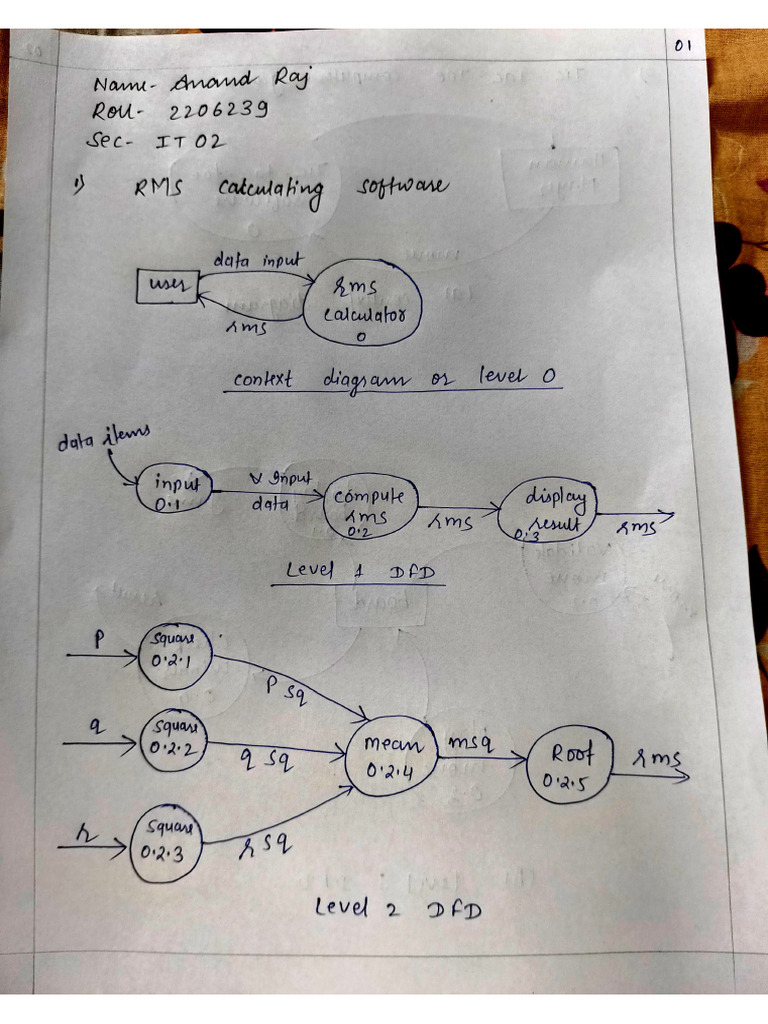 01
Name- Anand Raj
Roll- 2206239
Sec- IT 02
1) RMS calculating software
data input
user
rms
calculator
0
rms
context diagram or level 0
data items
input
0.1
Input
data
compute
rms
0.2
rms
display
result
0.3
rms
Level 1 DFD
P
square
0.2.1
P sq
q
square
0.2.2
q sq
mean
0.2.4
msq
Root
0.2.5
rms
r
square
0.2.3
r sq
Level 2 DFD